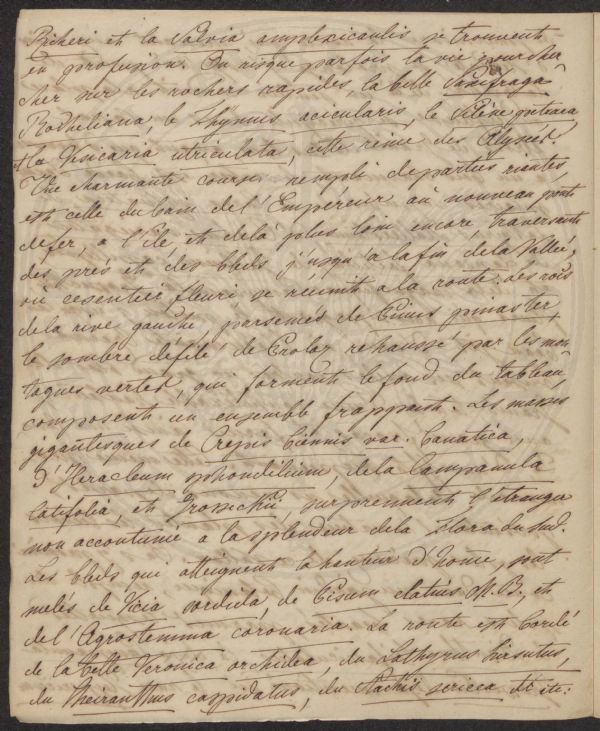 Richeri et la Salvia amplexicaulis se trouvent
en profusion. On risque parfois la vie pour cher
cher sur les rochers rapides, la belle Saxifraga
Rocheliana, le Thymus acicularis, le Silène petraea
+ la Vesicaria utriculata, cette reine des Alysses.
Une charmante course rempli de parties riantes,
est celle du bain de l'Empéreur au nouveau pont
defer, a l'Ile, et delà plus loin encore, traversant
des prés et des bleds j'usqu'a la fin dela Vallée,
où cesentier fleuri se réunit ala route. Les rocs
dela rive gauche, parsemés de Pinus pinaster,
le sombre défilé de Prolaz rehaussé par les mon
tagnes vertes, qui forment le fond du tableau,
composent un ensemble frappant. Les masses
gigantesques de Crepis biennis var. banatica,
d'Heracleum sphondilium, dela Campanula
latifolia, et Grossekii, surprennent l'étranger
non accoutumé a la splendeur dela Flora du Sud.
Les bleds qui atteignent la hauteur d'home, sont
melés de Vicia sordida, de Pisum elatius M.B., et
del'Agrostemma coronaria. La route est bordé
de la belle Veronica orchidea, du Lathyrus hirsutus,
du Cheiranthus cuspidatus, du Stachis sericea etc etc: